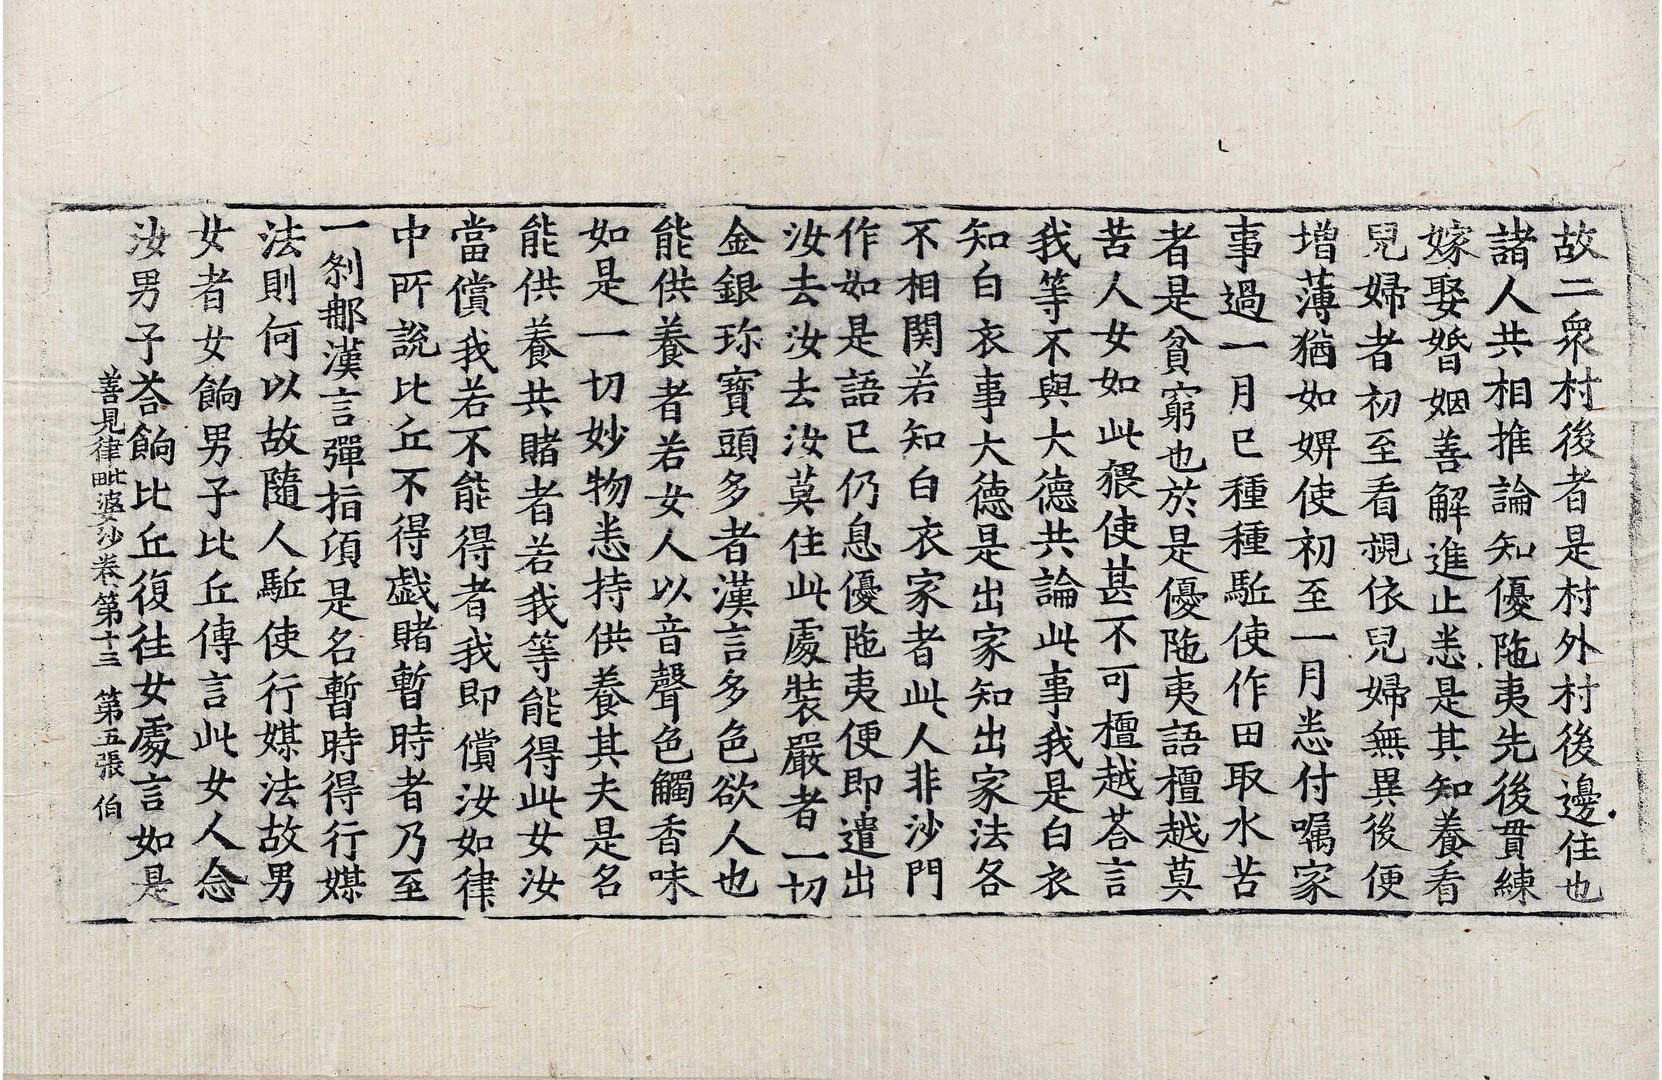 故二衆村後者是村外村後邊住也
諸人共相推論知優陁夷先後貫練
嫁娶婚姻善解進止悉是其知養看
兒婦者初至看視依兒婦無異後便
增薄猶如婢使初至一月悉付囑家
事過一月已種種駈使作田取水苦
者是貧窮也於是優陁夷語檀越莫
苦人女如此猥使甚不可檀越荅言
我等不與大德共論此事我是白衣
知白衣事大德是出家知出家法各
不相関若知白衣家者此人非沙門
作如是語已仍息優陁夷便即遣出
汝去汝去汝莫住此處裝嚴者一切
金銀珎寶頭多者漢言多色欲人也
能供養者若女人以音聲色觸香味
如是一切妙物悉持供養其夫是名
能供養共賭者若我等能得此女汝
當償我若不能得者我即償汝如律
中所說比丘不得戱賭暫時者乃至
一剎那漢言彈指項是名暫時得行媒
法則何以故隨人駈使行媒法故男
女者女餉男子比丘傳言此女人念
汝男子荅餉比丘復往女處言如是
善見律毗婆沙卷第十三 第五張 伯